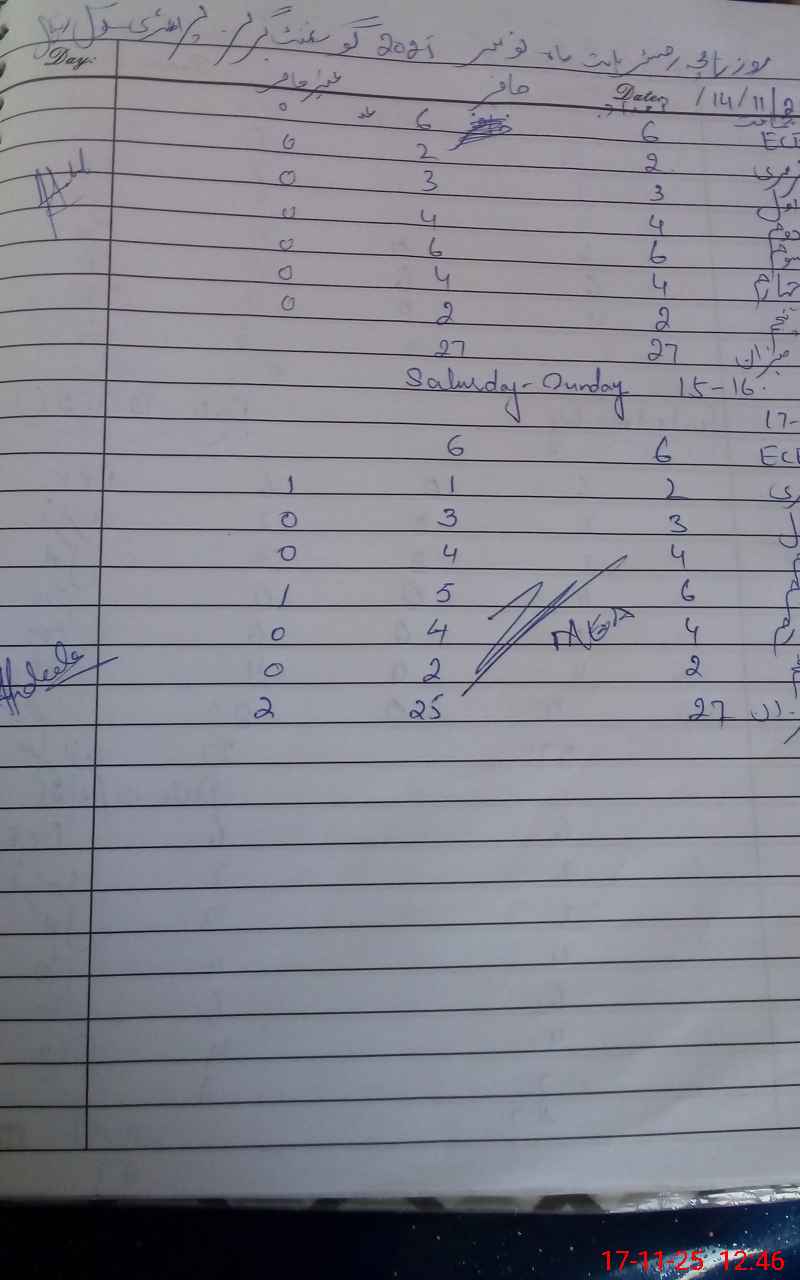 روزنامچہ رجسٹر بابت ماہ نومبر 2025 گورنمنٹ گرلز پرائمری سکول
Day:
Date: 14/11/2
تعداد حاضر غیر حاضر
ECE 6 6 0
2 2 0
اول 3 3 0
دوم 4 4 0
سوم 6 6 0
چہارم 4 4 0
پنجم 2 2 0
میزان 27 27
15-16. Saturday-Sunday
17-
ECE 6 6
2 1 1
3 3 0
4 4 0
6 5 1
4 4 0
2 2 0
27 25 2
17-11-25 12:46